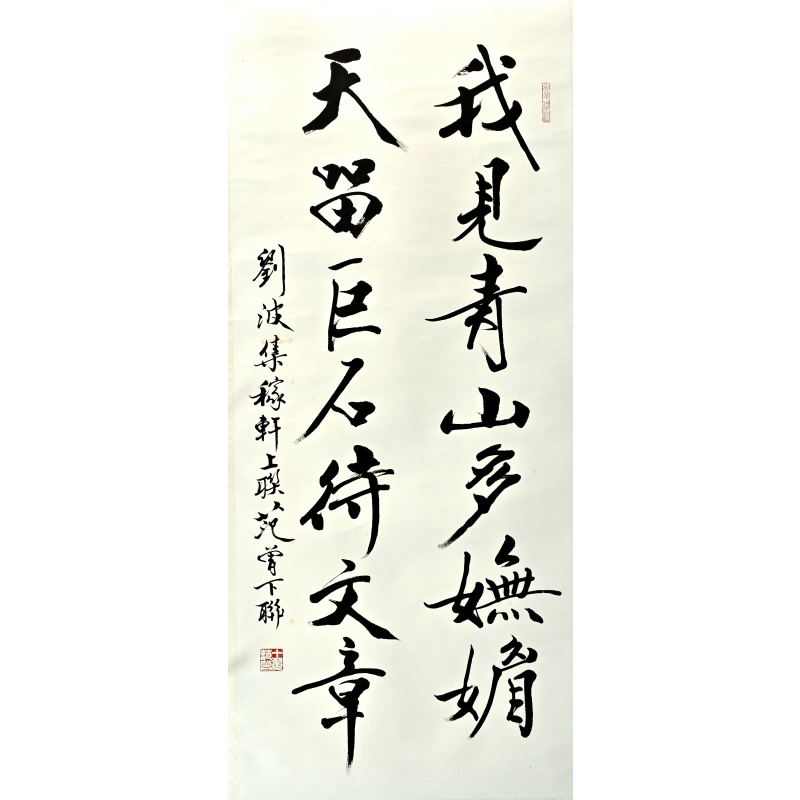 我見青山多嫵媚
天留巨石待文章
劉波集稼軒上聯范曾下聯